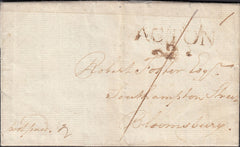 ACTON
2
Robert Foster Esqr.
Southampton Street
Bloomsbury.
not paid 2